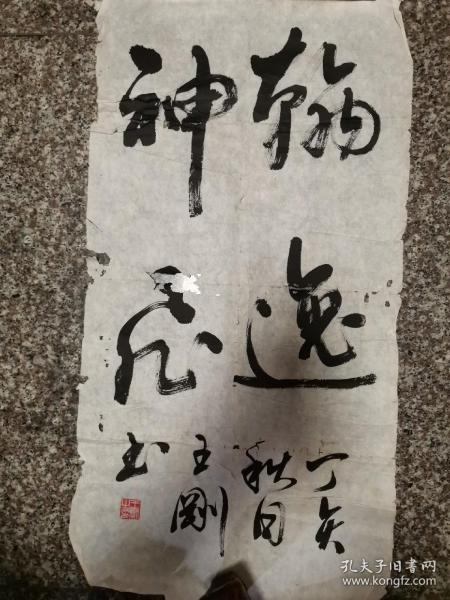 翰逸
神飞
丁亥
秋日
王刚
书
孔夫子旧书网
www.kongfz.com